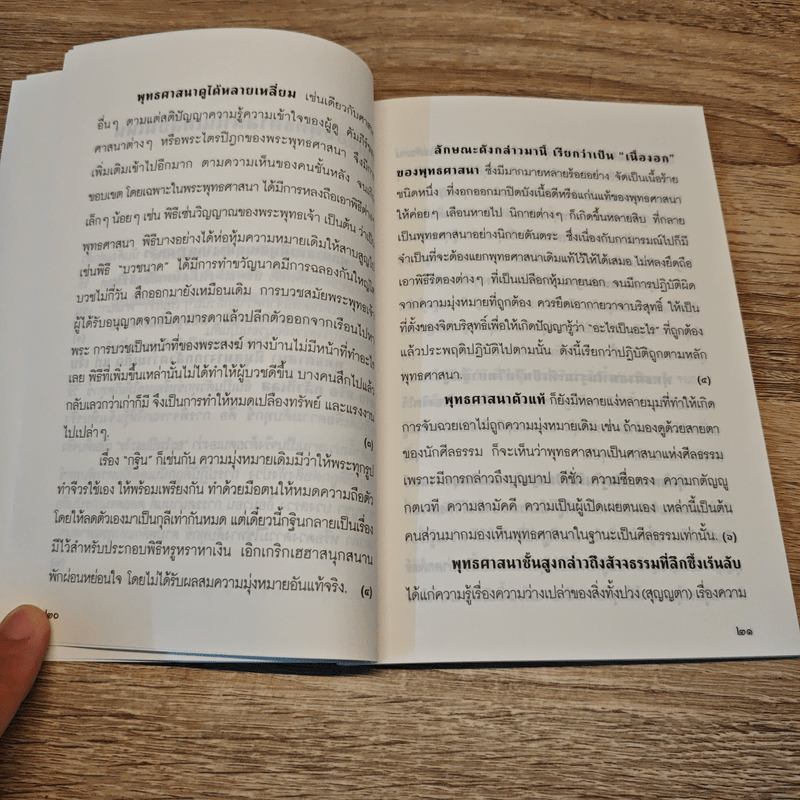 พุทธศาสนาดูได้หลายเหลี่ยม เช่นเดียวกับศาสนา
อื่นๆ ตามแต่สติปัญญาความรู้ความเข้าใจของผู้ดู คัมภีร์
ศาสนาต่างๆ หรือพระไตรปิฎกของพระพุทธศาสนา จึงมีการ
เพิ่มเติมเข้าไปอีกมาก ตามความเห็นของคนชั้นหลัง จนเกิน
ขอบเขต โดยเฉพาะในพระพุทธศาสนา ได้มีการหลงถือเอาพิธีต่างๆ
เล็กๆ น้อยๆ เช่น พิธีเซ่นวิญญาณของพระพุทธเจ้า เป็นต้น ว่าเป็น
พุทธศาสนา พิธีบางอย่างได้ห่อหุ้มความหมายเดิมให้สาบสูญไป
เช่นพิธี "บวชนาค" ได้มีการทำขวัญนาคมีการฉลองกันใหญ่โต
บวชไม่กี่วัน สึกออกมายังเหมือนเดิม การบวชสมัยพระพุทธเจ้า
ผู้ได้รับอนุญาตจากบิดามารดาแล้วปลีกตัวออกจากเรือนไปหา
พระ การบวชเป็นหน้าที่ของพระสงฆ์ ทางบ้านไม่มีหน้าที่ทำอะไร
เลย พิธีที่เพิ่มขึ้นเหล่านั้นไม่ได้ทำให้ผู้บวชดีขึ้น บางคนสึกไปแล้ว
กลับเลวกว่าเก่าก็มี จึงเป็นการทำให้หมดเปลืองทรัพย์ และแรงงาน
ไปเปล่าๆ. (๓)
เรื่อง "กฐิน" ก็เช่นกัน ความมุ่งหมายเดิมมีว่าให้พระทุกรูป
ทำจีวรใช้เอง ให้พร้อมเพรียงกัน ทำด้วยมือตนให้หมดความถือตัว
โดยให้ลดตัวเองมาเป็นกุลีเท่ากันหมด แต่เดี๋ยวนี้กฐินกลายเป็นเรื่อง
มีไว้สำหรับประกอบพิธีหรูหราหาเงิน เอิกเกริกเฮฮาสนุกสนาน
พักผ่อนหย่อนใจ โดยไม่ได้รับผลสมความมุ่งหมายอันแท้จริง. (๔)
๒๐
ลักษณะดังกล่าวมานี้ เรียกว่าเป็น "เนื้องอก"
ของพุทธศาสนา ซึ่งมีมากมายหลายร้อยอย่าง จัดเป็นเนื้อร้าย
ชนิดหนึ่ง ที่งอกออกมาปิดบังเนื้อดีหรือแก่นแท้ของพุทธศาสนา
ให้ค่อยๆ เลือนหายไป นิกายต่างๆ ก็เกิดขึ้นหลายสิบ ที่กลาย
เป็นพุทธศาสนาอย่างนิกายตันตระ ซึ่งเนื่องกับกามารมณ์ไปก็มี
จำเป็นที่จะต้องแยกพุทธศาสนาเดิมแท้ไว้ให้ได้เสมอ ไม่หลงยึดถือ
เอาพิธีรีตองต่างๆ ที่เป็นเปลือกหุ้มภายนอก จนมีการปฏิบัติผิด
จากความมุ่งหมายที่ถูกต้อง ควรยึดเอากายวาจาบริสุทธิ์ ให้เป็น
ที่ตั้งของจิตบริสุทธิ์เพื่อให้เกิดปัญญารู้ว่า "อะไรเป็นอะไร" ที่ถูกต้อง
แล้วประพฤติปฏิบัติไปตามนั้น ดังนี้เรียกว่าปฏิบัติถูกตามหลัก
พุทธศาสนา. (๕)
พุทธศาสนาตัวแท้ ก็ยังมีหลายแง่หลายมุมที่ทำให้เกิด
การจับฉวยเอาไม่ถูกความหมายเดิม เช่น ถ้ามองดูด้วยสายตา
ของนักศีลธรรม ก็จะเห็นว่าพุทธศาสนาเป็นศาสนาแห่งศีลธรรม
เพราะมีการกล่าวถึงบุญบาป ดีชั่ว ความซื่อตรง ความกตัญญู
กตเวที ความสามัคคี ความเป็นผู้เปิดเผยตนเอง เหล่านี้เป็นต้น
คนส่วนมากมองเห็นพุทธศาสนาในฐานะเป็นศีลธรรมเท่านั้น. (๖)
พุทธศาสนาชั้นสูงกล่าวถึงสัจจธรรมที่ลึกซึ้งเร้นลับ
ได้แก่ความรู้เรื่องความว่างเปล่าของสิ่งทั้งปวง (สุญญตา) เรื่องความ
๒๑